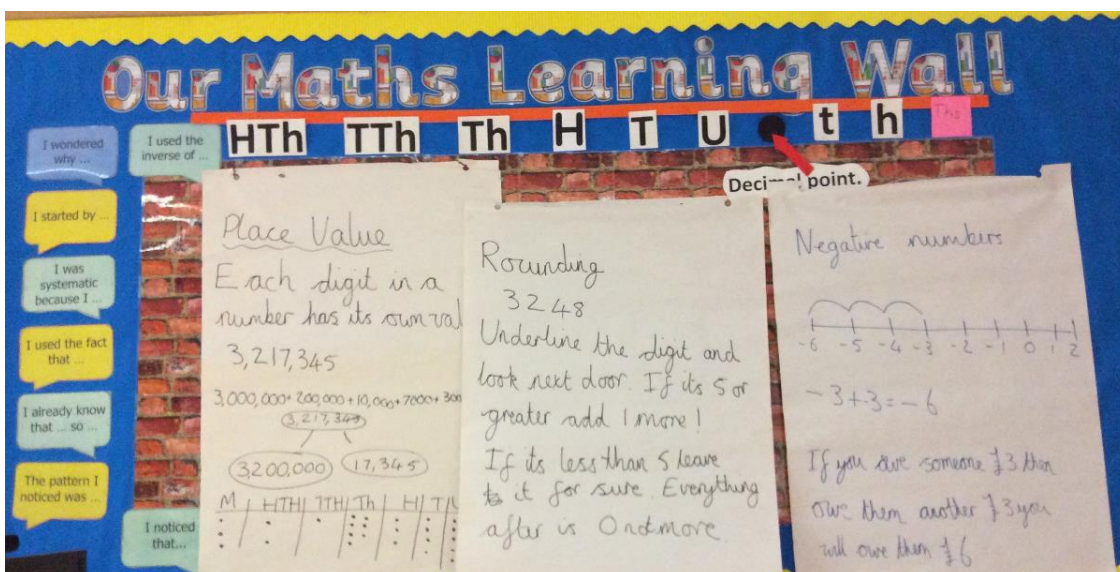 Our Maths Learning Wall
HTh TTh Th H T U t h Ths
Decimal point.
I wondered
why ...
I started by ...
I was
systematic
because I ...
I used the fact
that ...
I already know
that ... so ...
The pattern I
noticed was ...
I used the
inverse of ...
I noticed
that...
Place Value
Each digit in a
number has its own val
3,217,345
3,000,000+ 200,000+10,000+7000+300
3,217,345
3200,000 17,345
M HTH TTH Th H T U
Rounding
3248
Underline the digit and
look next door. If its 5 or
greater add 1 more!
If its less than 5 leave
it for sure. Everything
after is 0 ndmore.
Negative numbers
-6 -5 -4 -3 -2 -1 0 1 2
-3+-3=-6
If you owe someone £3 then
owe them another £3 you
will owe them £6